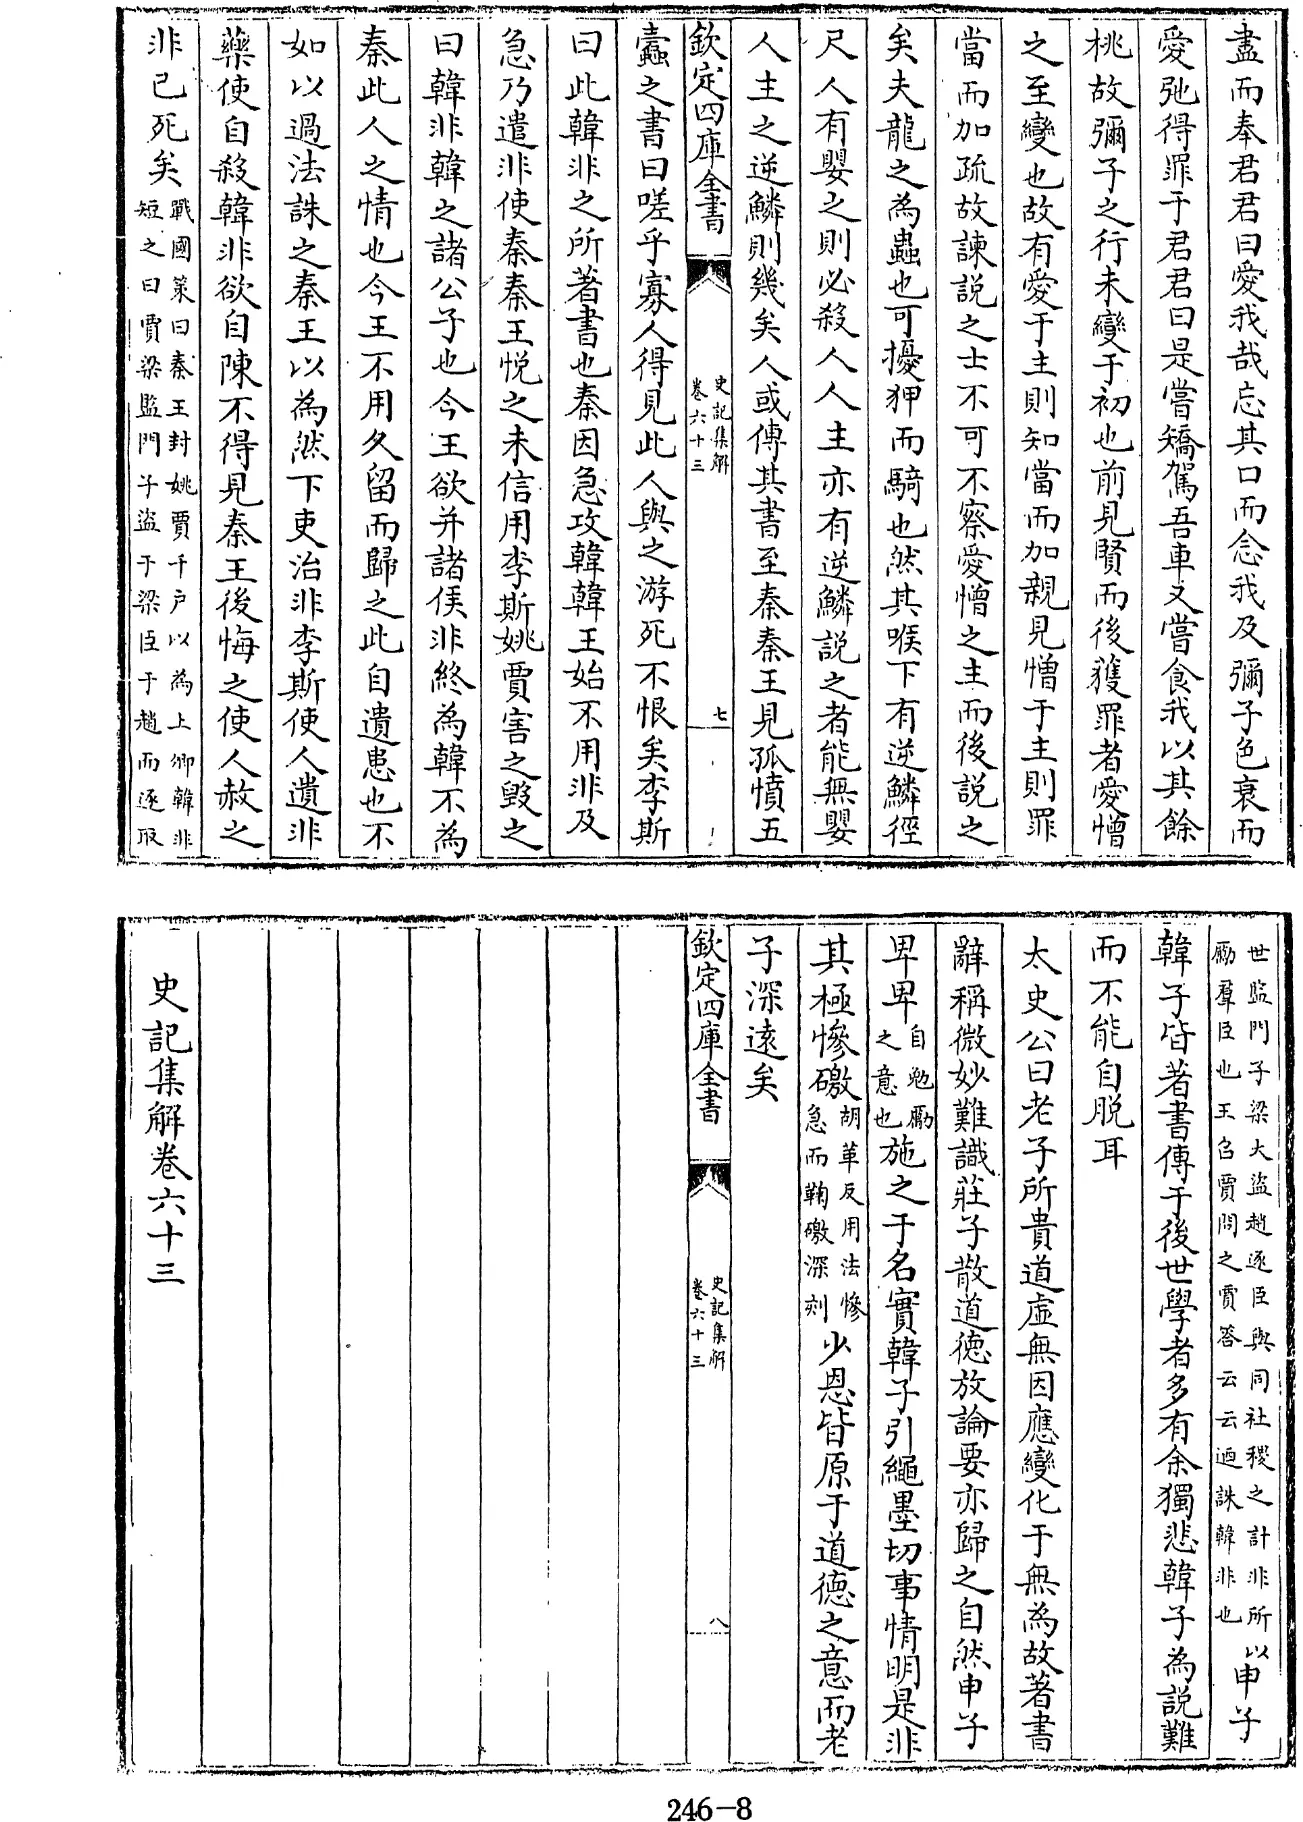 盡而奉君君曰愛我哉忘其口而念我及彌子色衰而
愛弛得罪于君君曰是嘗矯駕吾車又嘗食我以其餘
桃故彌子之行未變于初也前見賢而後獲罪者愛憎
之至變也故有愛于主則知當而加親見憎于主則罪
當而加疏故諫説之士不可不察愛憎之主而後説之
矣夫龍之為蟲也可擾狎而騎也然其喉下有逆鱗徑
尺人有嬰之則必殺人人主亦有逆鱗説之者能無嬰
人主之逆鱗則幾矣人或傳其書至秦秦王見孤憤五
欽定四庫全書
史記集解
卷六十三
七
蠹之書曰嗟乎寡人得見此人與之游死不恨矣李斯
曰此韓非之所著書也秦因急攻韓韓王始不用非及
急乃遣非使秦秦王悦之未信用李斯姚賈害之毀之
曰韓非韓之諸公子也今王欲并諸侯非終為韓不為
秦此人之情也今王不用久留而歸之此自遺患也不
如以過法誅之秦王以為然下吏治非李斯使人遺非
藥使自殺韓非欲自陳不得見秦王後悔之使人赦之
非已死矣
戰國策曰秦王封姚賈千户以為上卿韓非
短之曰賈梁監門子盜于梁臣于趙而逐取
世監門子梁大盜趙逐臣與同社稷之計非所以
勵羣臣也王召賈問之賈答云云迺誅韓非也
申子
韓子皆著書傳于後世學者多有余獨悲韓子為説難
而不能自脱耳
太史公曰老子所貴道虛無因應變化于無為故著書
辭稱微妙難識莊子散道徳放論要亦歸之自然申子
卑卑
自勉勵
之意也
施之于名實韓子引繩墨切事情明是非
其極慘礉
胡革反用法慘
急而鞠礉深刻
少恩皆原于道徳之意而老
子深遠矣
欽定四庫全書
史記集解
卷六十三
八
史記集解卷六十三
246-8